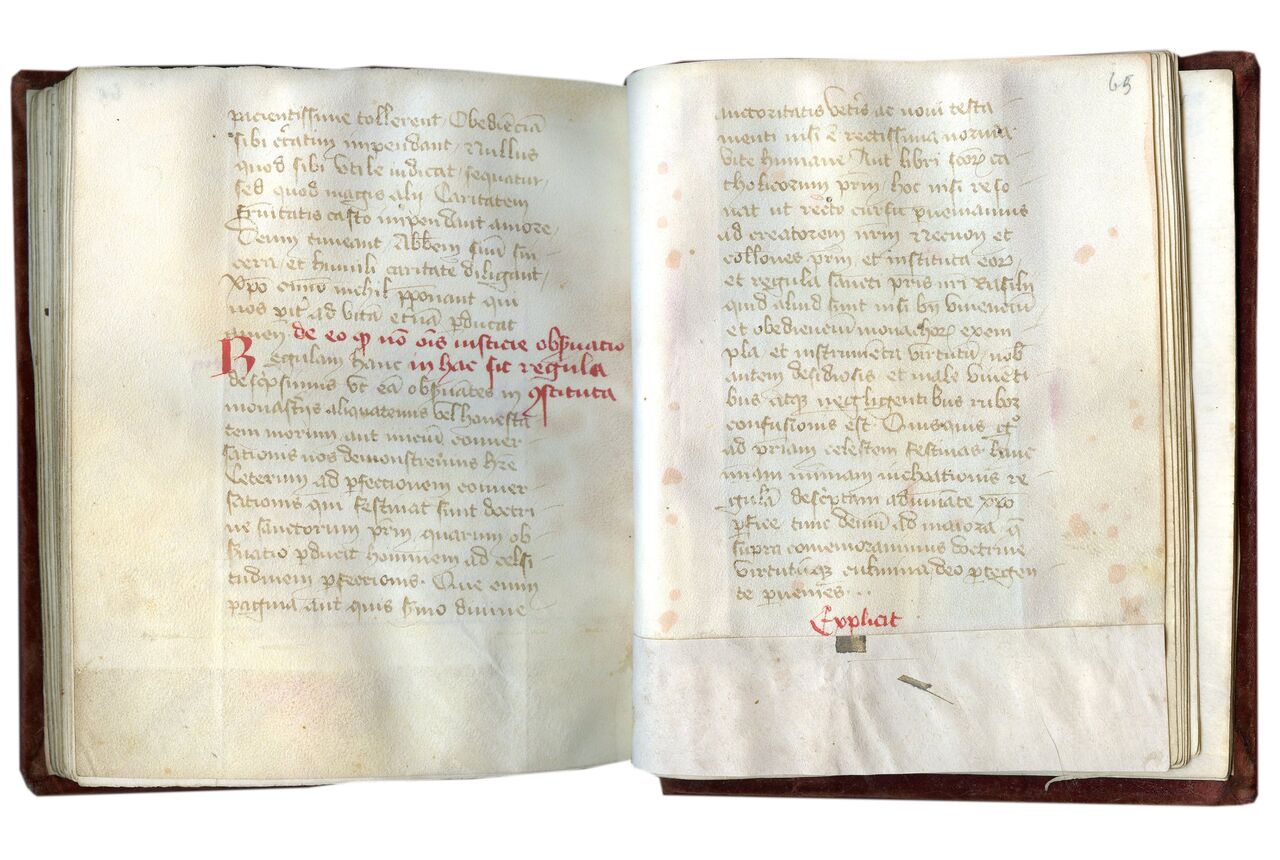 pacientissime tollerent Obediēciā
sibi c̄tatim impendant. Nullus
quod sibi Utile iudicat, sequatur,
sed quod magis alij Caritatem
fr̄nitatis casto īpendant amore,
Deum timeant, Abb̄em suū sin
cera, et humili caritate diligant,
Xp̄o oīno nichil p̄ponant qui
nos pit̄ ad vitā et̄nā ꝑducat
amen de eo ꝙ nō oīs iusticie obẜuatio
Regulam hanc in hac sit regula
desc̄psimus vt eā obẜuātes in ꝯstituta
monast̄ijs aliquatenus vel honesta
tem morum aut iniciū conuer
sationis nos demonstremus h̄re
Ceterum ad ꝑfectionem conuer
sationis qui festinat sunt doctri
ne sanctorum pr̄m quarum ob
ẜuatio ꝑducit hominem ad celsi
tudinem ꝑfectionis. Que enim
pagina aut quis ẜmo diuine
65
auctoritatis vet̄is ac noui testa
menti nisi ē rectissima norma
vite humane Aut libri sc̄oꝝ ca
tholicorum pr̄m, hoc nisi reso
nat ut recto cursu ꝑueniamus
ad creatorem nr̄m Necnon et
collones pr̄m, et instituta eoꝝ
et regula sancti pr̄is nr̄i Basilij
quid aliud sunt nisi bn̄ viuenciū
et obedienciū monachoꝝ exem
pla et instrumēta virtutū, nob̄
autem desidiosis et male viuēti
bus atqꝫ negligentibus rubor
confusionis est. Quisquis g̊
ad pr̄iam celestem festinas hanc
mīam inchoationis re
gulā desc̄ptam adiuuate xp̄o
ꝑfice tunc demū ad maiora q̄
supra comemorauimus doctrine
virtutūqꝫ culmina deo ꝓtegen
te ꝑuenies . . .
Explicit